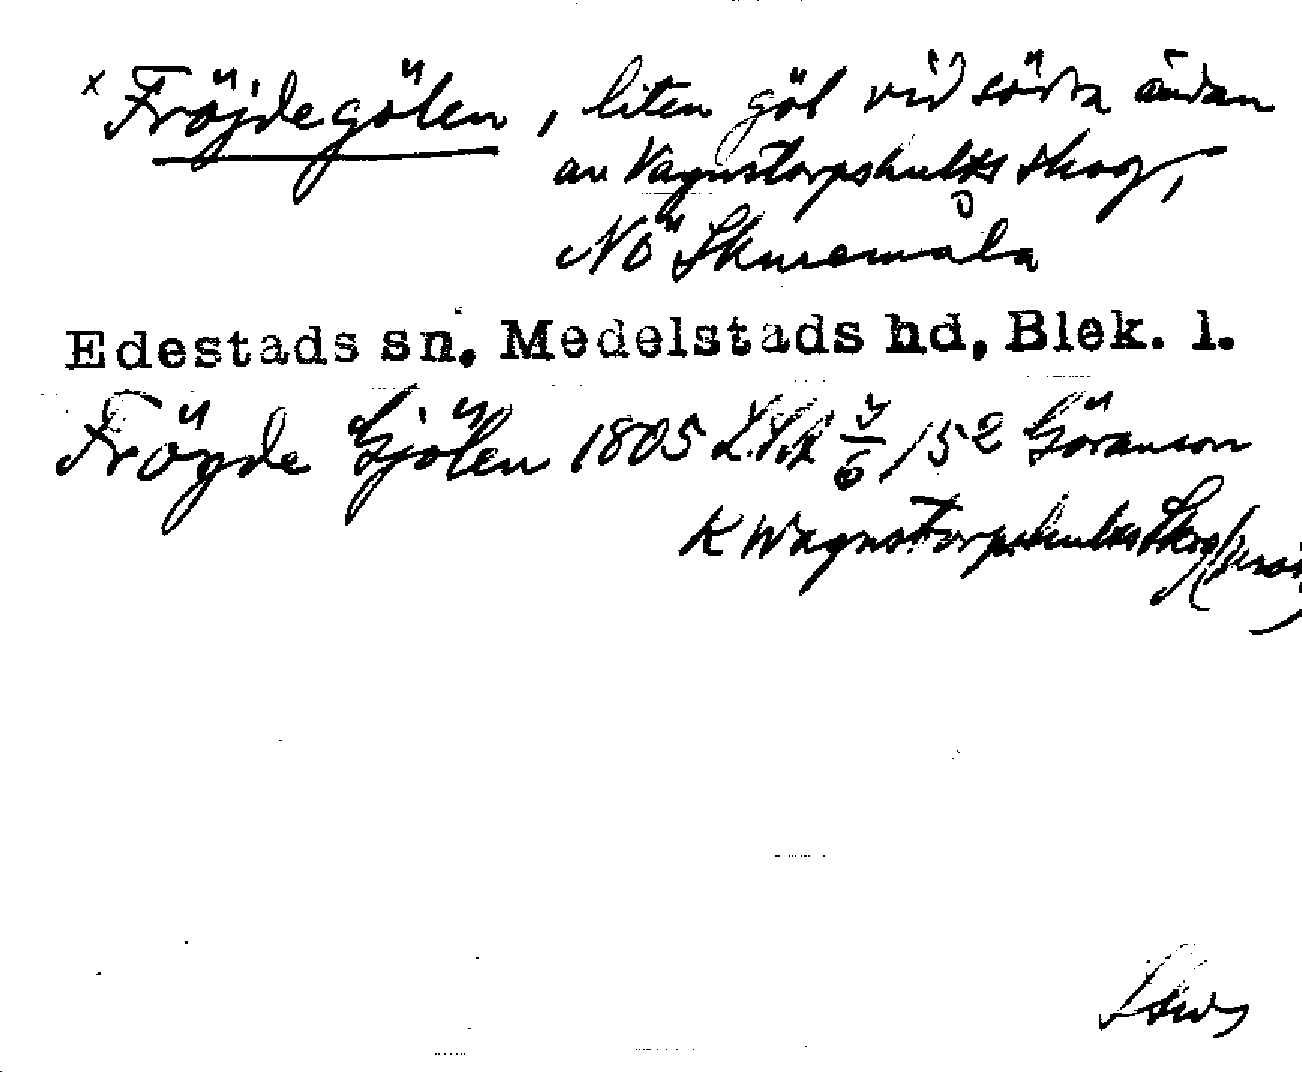 x Fröjdegölen, liten göl vid södra ändan
av Vagnstorpshults skog,
NÖ Skuremåla
Edestads sn. Medelstads hd, Blek. l.
Fröyde Gjölen 1805 152 Göranson
K Wagnstorpshults Skog